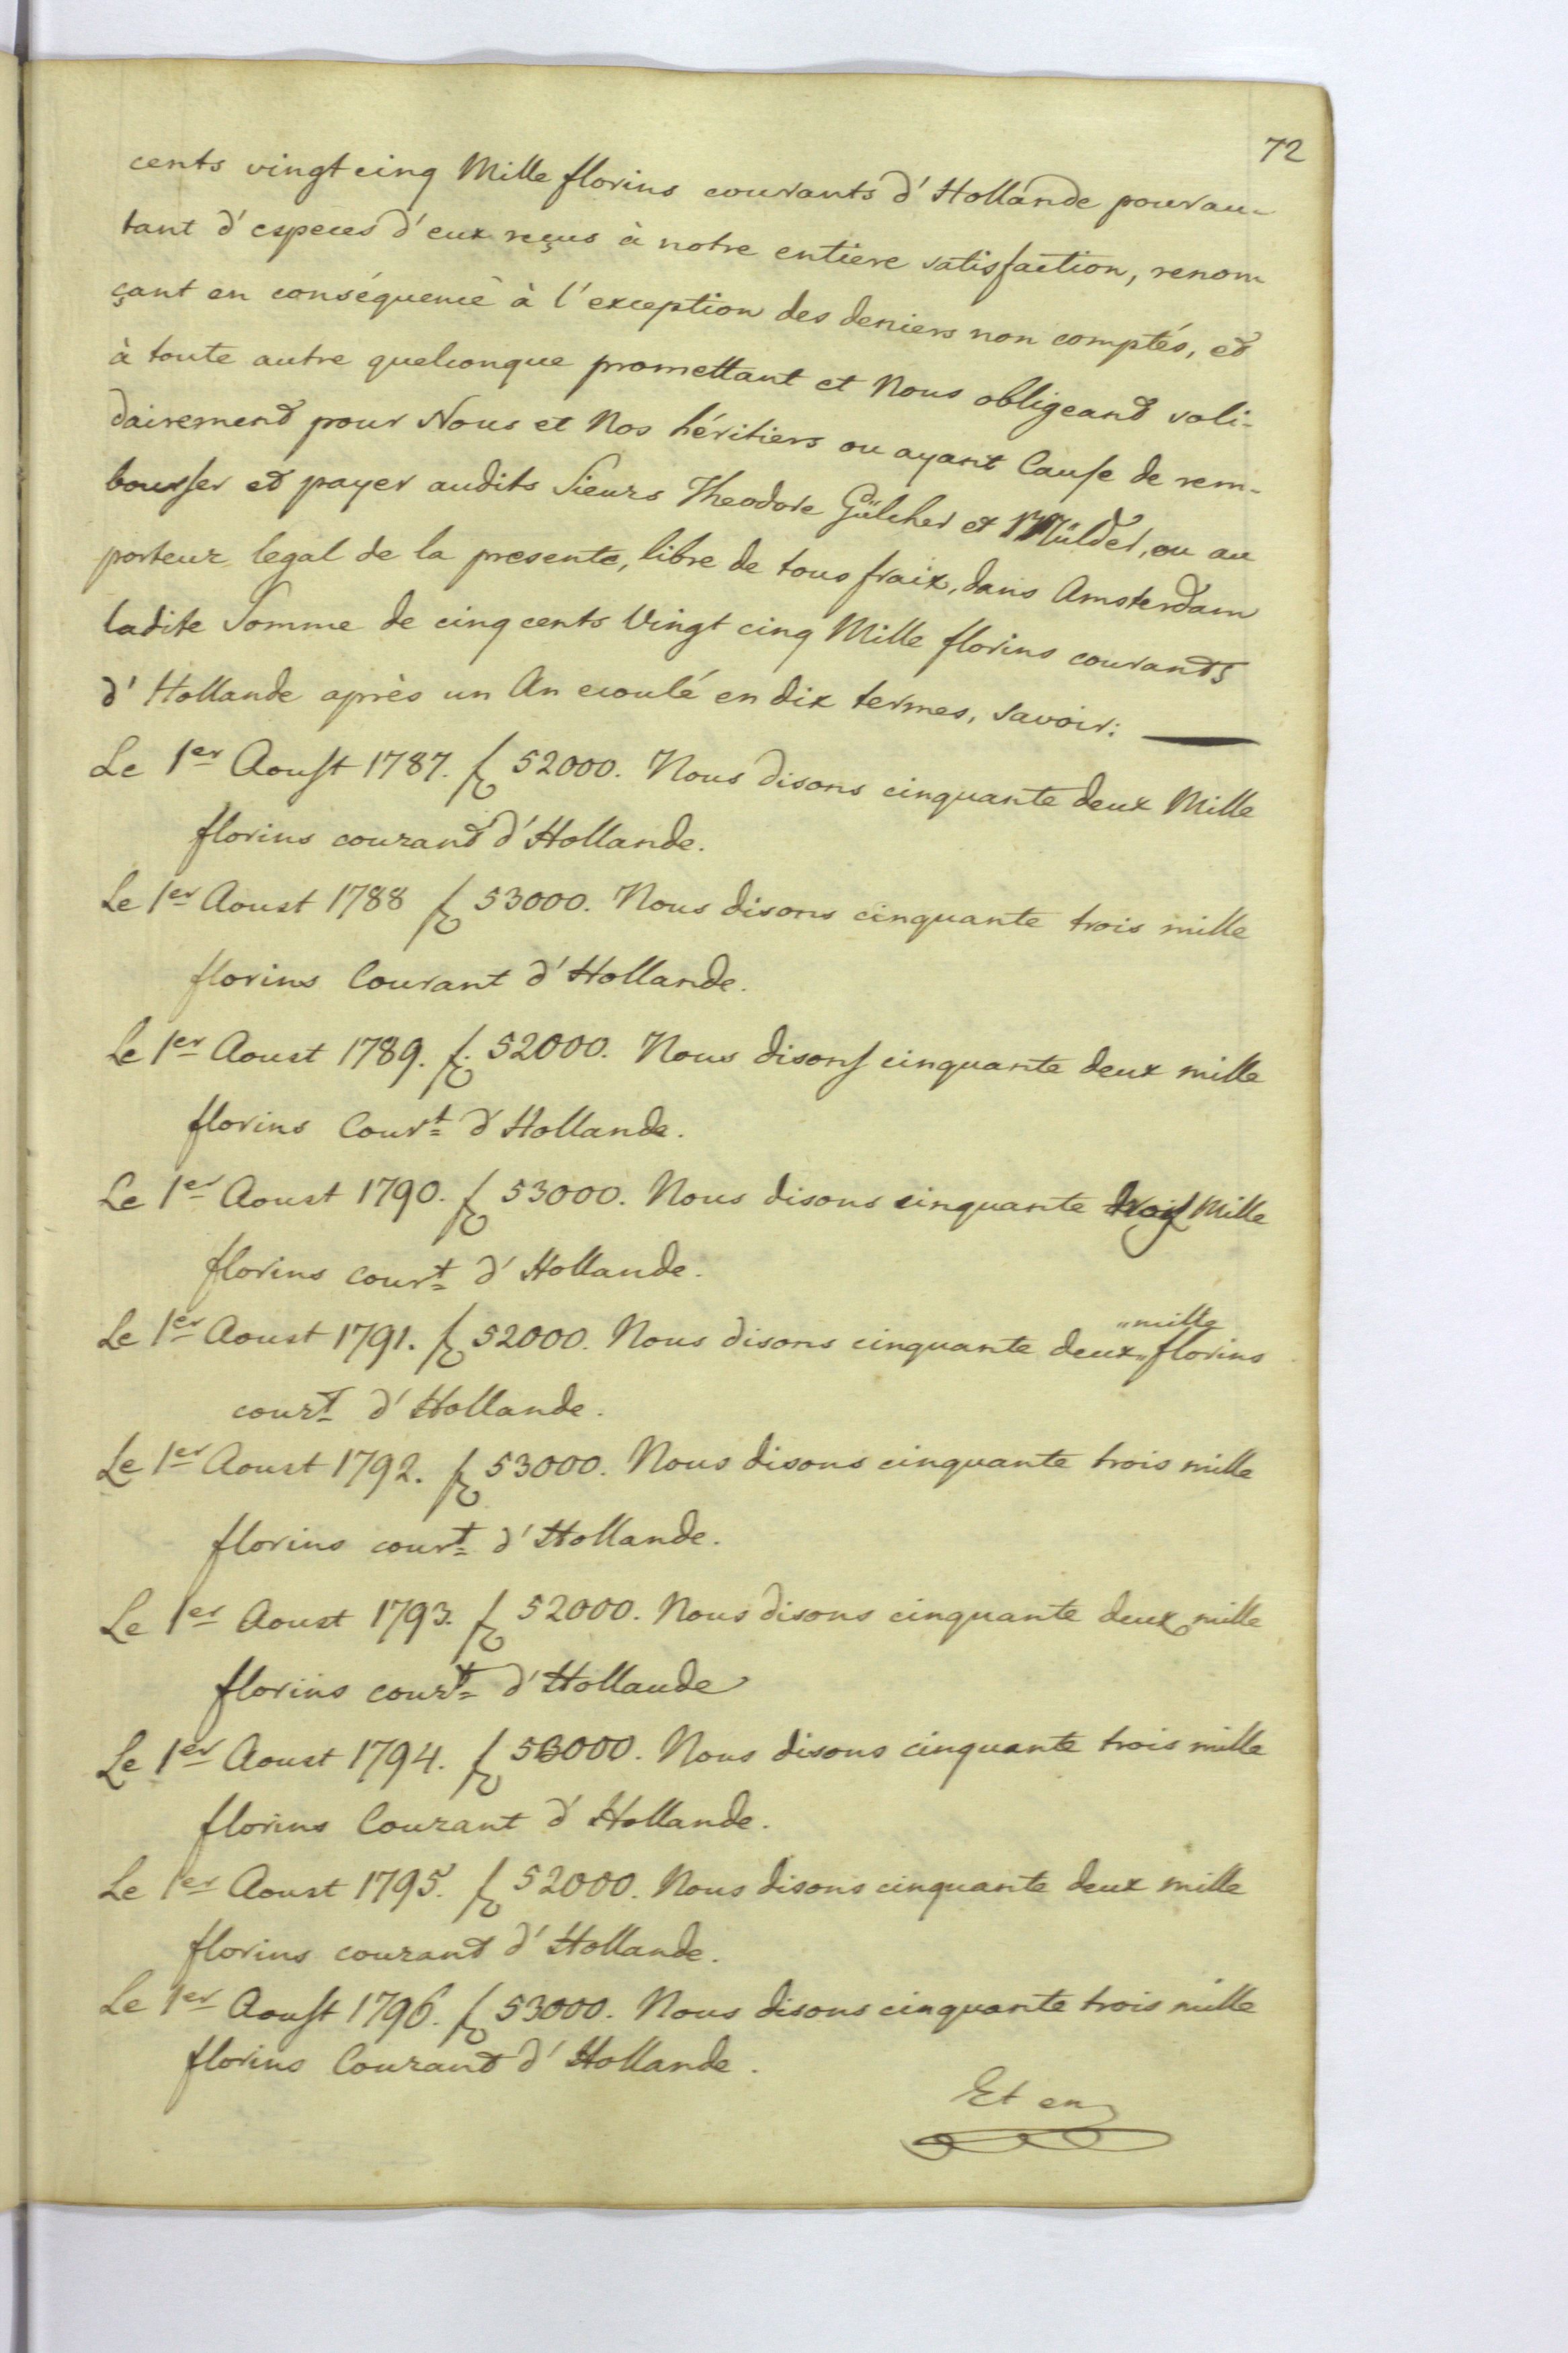 72
cents vingt cinq Mille florins courants d'Hollande pour au-
tant d'especes d'eux reçus à notre entiere satisfaction, renon
çant en conséquence à l'exception des deniers non comptés, et
à toute autre quelconque promettant et Nous obligeant soli-
dairement pour Nous et Nos héritiers ou ayant Cause de rem-
bourser et payer audits Sieurs Theodore Gülcher et Mülder, ou au
porteur legal de la presente, libre de tous fraix, dans Amsterdam
ladite Somme de cinq cents Vingt cinq Mille florins courants
d'Hollande après un An ecoulé en dix termes, savoir:
Le 1er Aoust 1787. f 52000. Nous disons cinquante deux Mille
florins courant d'Hollande.
Le 1er Aoust 1788 f 53000. Nous disons cinquante trois mille
florins Courant d'Hollande.
Le 1er Aoust 1789. f. 52000. Nous disons cinquante deux mille
florins Court d'Hollande.
Le 1er Aoust 1790. f 53000. Nous disons cinquante trois Mille
florins court d'Hollande.
Le 1er Aoust 1791. f 52000. Nous disons cinquante deux „mille„ florins
court d'Hollande.
Le 1er Aoust 1792. f 53000. Nous disons cinquante trois mille
florins court d'Hollande.
Le 1er Aoust 1793. f 52000. Nous disons cinquante deux mille
florins court d'Hollande
Le 1er Aoust 1794. f 53000. Nous disons cinquante trois mille
florins Courant d'Hollande.
Le 1er Aoust 1795. f 52000. Nous disons cinquante deux mille
florins courant d'Hollande.
Le 1er Aoust 1796. f 53000. Nous disons cinquante trois mille
florins Courant d'Hollande.
Et en